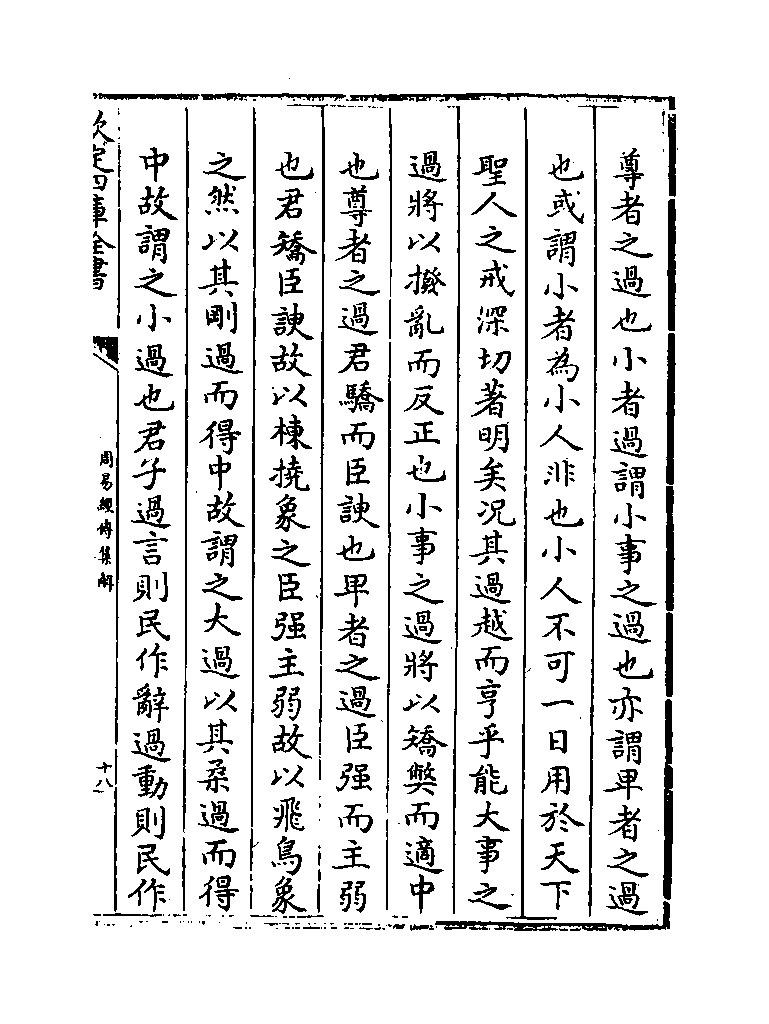 尊者之過也小者過謂小事之過也亦謂卑者之過
也或謂小者為小人非也小人不可一日用於天下
聖人之戒深切著明矣况其過越而亨乎能大事之
過將以撥亂而反正也小事之過將以矯弊而適中
也尊者之過君驕而臣諛也卑者之過臣强而主弱
也君矯臣諛故以棟撓象之臣强主弱故以飛鳥象
之然以其剛過而得中故謂之大過以其柔過而得
中故謂之小過也君子過言則民作辭過動則民作
欽定四庫全書
周易經傳集解
十八